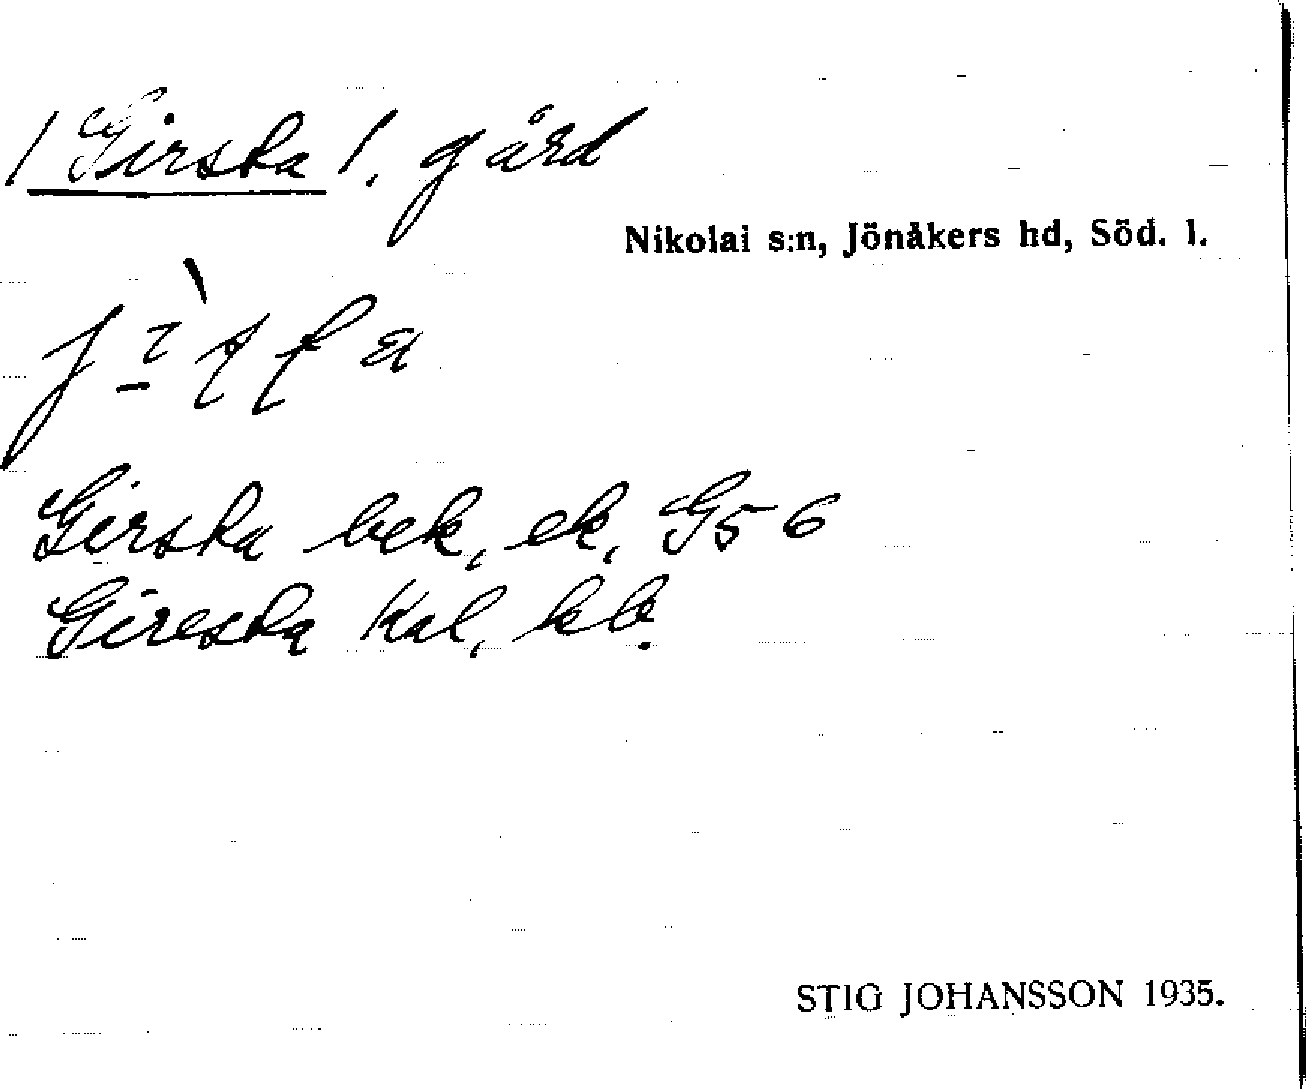 /Girska/, gård
Nikolai s:n, Jönåkers hd, Söd. l.
Girska bek, ek, G56
Gireska Kal, kb.
STIG JOHANSSON 1935.